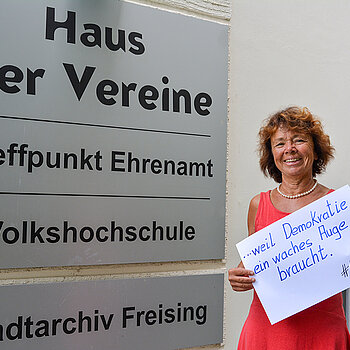 Haus
er Vereine
effpunkt Ehrenamt
Volkshochschule
adtarchiv Freising
...weil Demokratie
ein waches Auge
braucht.
#